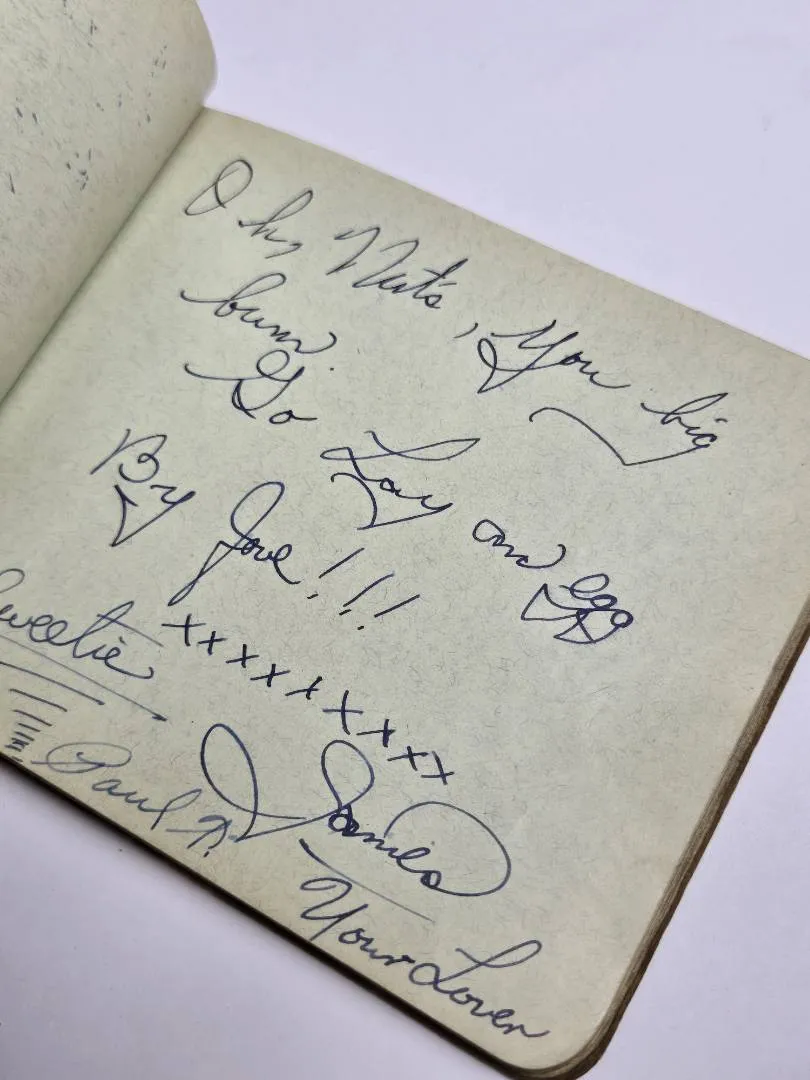 Oh, Nuts, You big
bum.
Go Lay an egg
By Jove!!!
Sweetie xxxxxxxxx
Paul
James
Your Lover